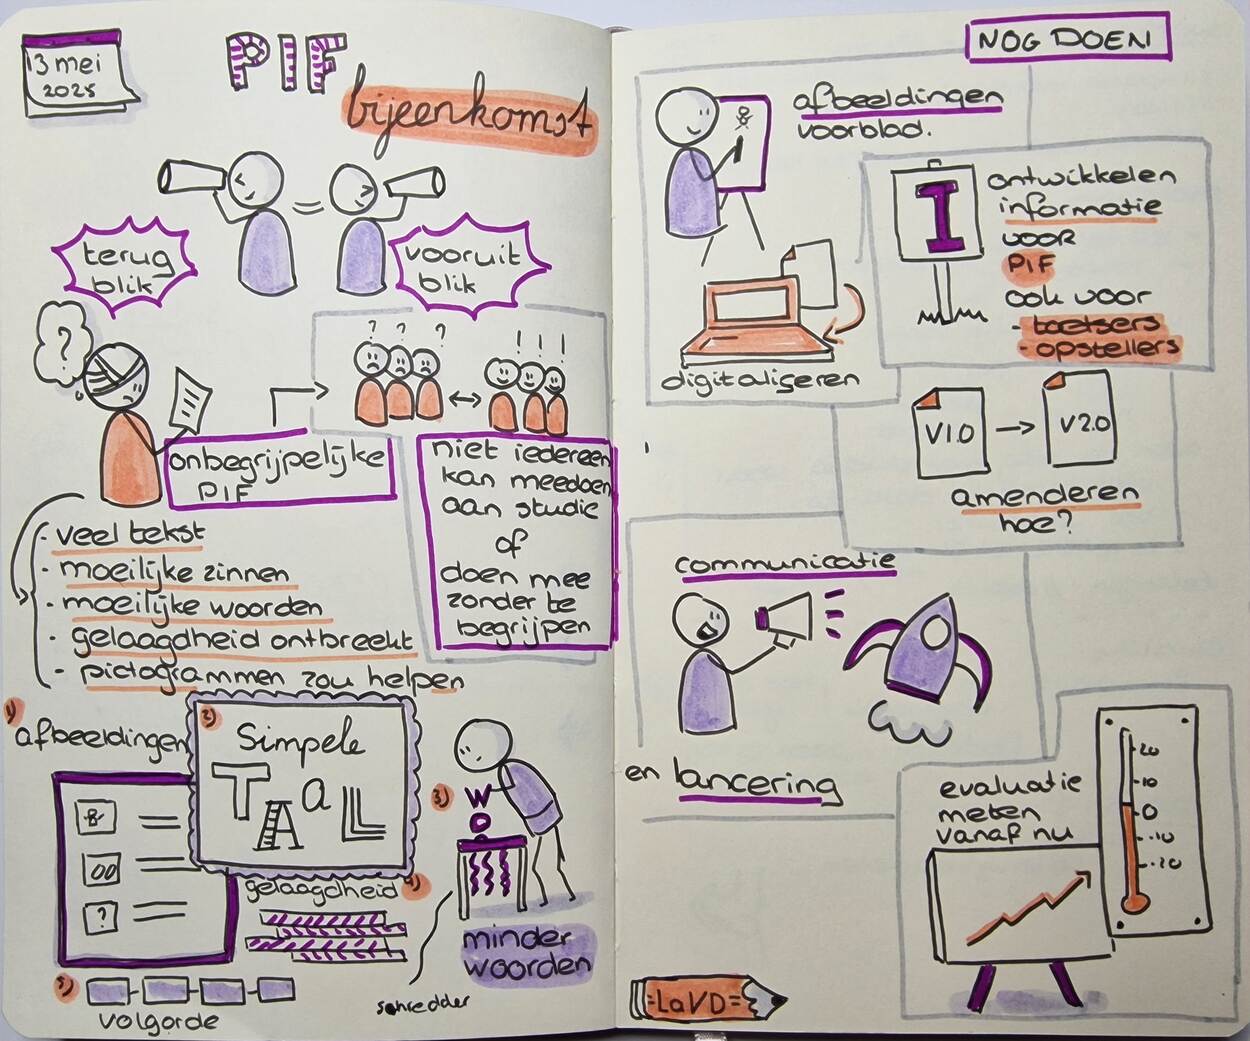 13 mei
2025
PIF
bijeenkomst
terug
blik
vooruit
blik
?
? ? ?
! ! !
onbegrijpelijke
PIF
niet iedereen
kan meedoen
aan studie
of
doen mee
zonder te
begrijpen
- veel tekst
- moeilijke zinnen
- moeilijke woorden
- gelaagdheid ontbreekt
- pictogrammen zou helpen
1)
afbeeldingen
?
2)
Simpele
TAAL
3)
W
O
minder
woorden
schredder
gelaagdheid 4)
5)
volgorde
NOG DOEN
afbeeldingen
voorblad.
digitaliseren
I
ontwikkelen
informatie
voor
PIF
ook voor
- toetsers
- opstellers
V1.0 → V2.0
amenderen
hoe?
communicatie
en lancering
evaluatie
meten
vanaf nu
20
10
0
-10
-20
=LaVD=